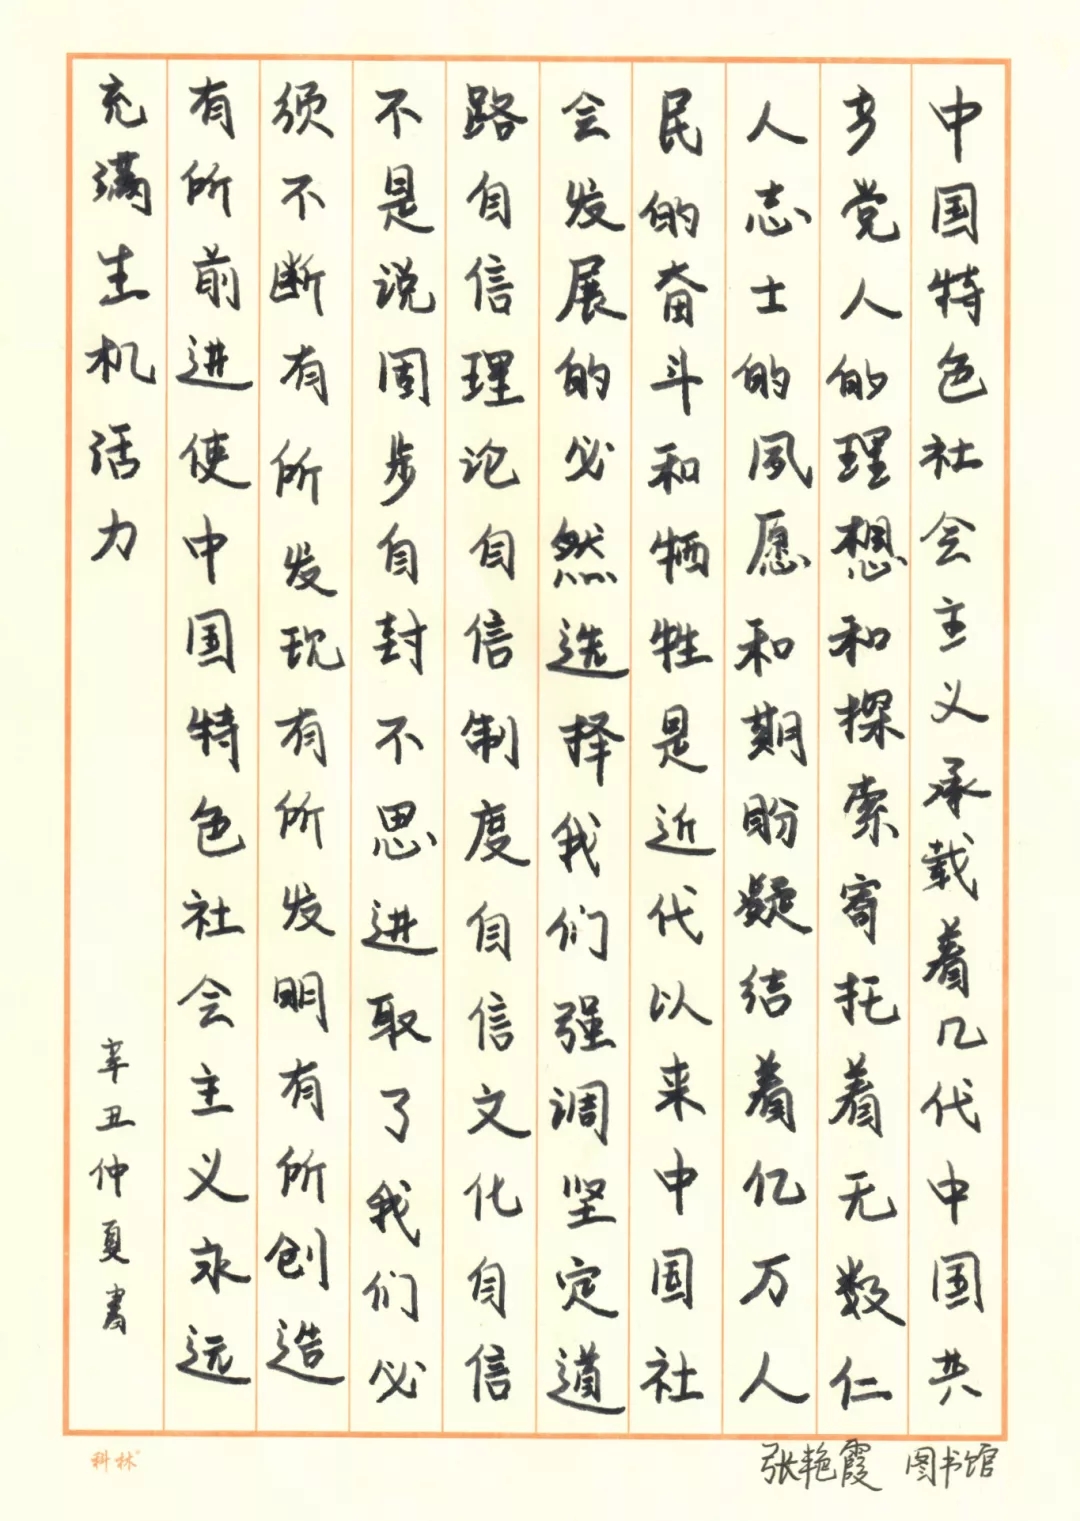 中国特色社会主义承载着几代中国共
产党人的理想和探索寄托着无数仁
人志士的夙愿和期盼凝结着亿万人
民的奋斗和牺牲是近代以来中国社
会发展的必然选择我们强调坚定道
路自信理论自信制度自信文化自信
不是说固步自封不思进取了我们必
须不断有所发现有所发明有所创造
有所前进使中国特色社会主义永远
充满生机活力
辛丑仲夏书
科林
张艳霞 图书馆